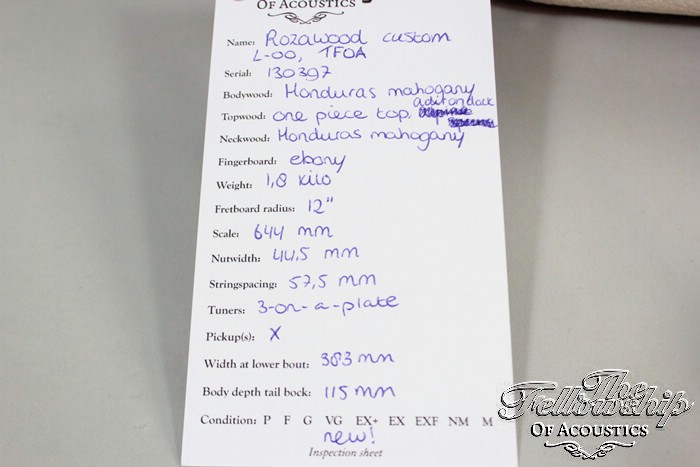 OF ACOUSTICS
Name: Rozawood custom
L-00, TFOA
Serial: 130397
Bodywood: Honduras mahogany
adirondack
Topwood: one piece top.
Neckwood: Honduras mahogany
Fingerboard: ebony
Weight: 1,8 kilo
Fretboard radius: 12"
Scale: 644 mm
Nutwidth: 44,5 mm
Stringspacing: 57,5 mm
Tuners: 3-on-a-plate
Pickup(s): X
Width at lower bout: 383 mm
Body depth tail bock: 115 mm
Condition: P F G VG EX+ EX EXF NM M
new!
Inspection sheet
The
Fellowship
OF ACOUSTICS